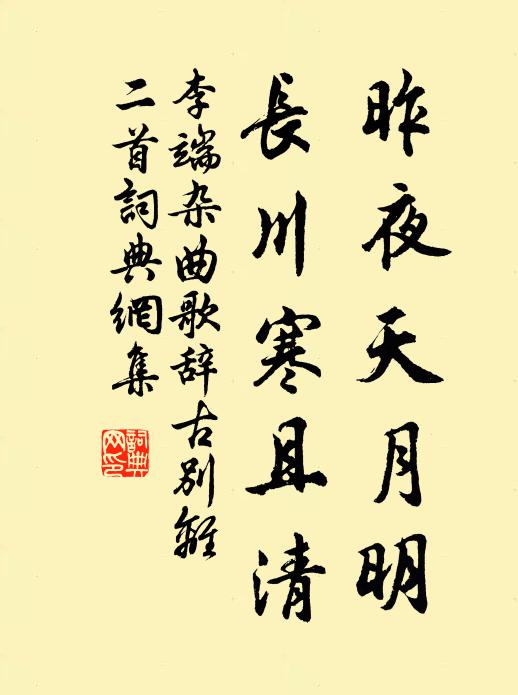 昨夜天月明
長川寒且清
李端杂曲歌辞古别離
二首詞典網集
詞典
网印